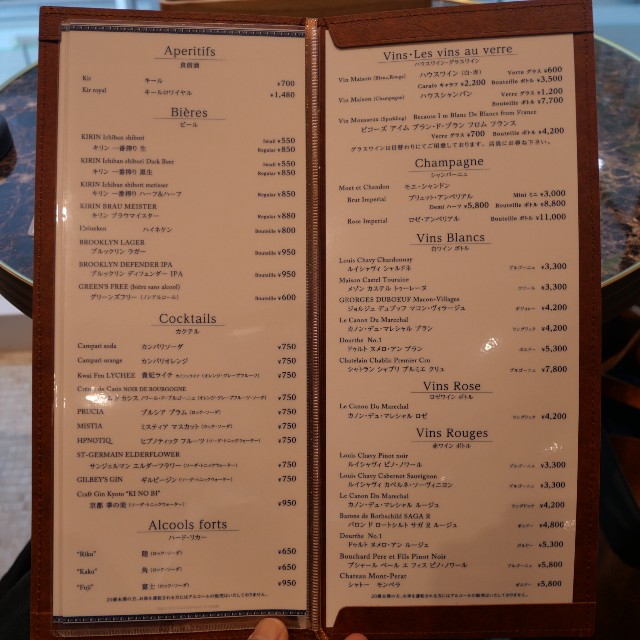 Aperitifs
食前酒
Kir キール ¥700
Kir royal キールロワイヤル ¥1,480
Bières
ビール
KIRIN Ichiban shibori Small ¥550
キリン 一番搾り 生 Regular ¥850
KIRIN Ichiban shibori Dark Beer Small ¥550
キリン 一番搾り 黒生 Regular ¥850
KIRIN Ichiban shibori metisser
キリン 一番搾り ハーフ&ハーフ Regular ¥850
KIRIN BRAU MEISTER
キリン ブラウマイスター Regular ¥880
ハイネケン Bouteille ¥800
BROOKLYN LAGER
ブルックリン ラガー Bouteille ¥950
BROOKLYN DEFENDER IPA
ブルックリン ディフェンダー IPA Bouteille ¥950
GREEN'S FREE (bière sans alcool)
グリーンズフリー (ノンアルコール) Bouteille ¥600
Cocktails
カクテル
Campari soda カンパリソーダ ¥750
Campari orange カンパリオレンジ ¥750
Kwai Feh LYCHEE 貴妃ライチ (オレンジ・グレープフルーツ) ¥750
NOIR DE BOURGOGNE
カシス ノワール・ド・ブルゴーニュ (オレンジ・グレープフルーツ・ソーダ) ¥750
PRUCIA プルシア プラム (ロック・ソーダ) ¥750
MISTIA ミスティア マスカット (ロック・ソーダ) ¥750
HPNOTIQ ヒプノティック フルーツ (ソーダ・トニックウォーター) ¥750
ST-GERMAIN ELDERFLOWER
サンジェルマン エルダーフラワー (ソーダ・トニックウォーター) ¥750
GILBEY'S GIN ギルビージン (ソーダ・トニックウォーター) ¥750
Craft Gin Kyoto "KI NO BI"
京都 季の美 (ソーダ・トニックウォーター) ¥950
Alcools forts
ハード・リカー
"Riku" 陸 (ロック・ソーダ) ¥650
"Kaku" 角 (ロック・ソーダ) ¥650
"Fuji" 富士 (ロック・ソーダ) ¥950
20歳未満の方、お車を運転される方にはアルコールの販売はいたしておりません。
Vins・Les vins au verre
ハウスワイン・グラスワイン
Vin Maison (Blanc,Rouge) ハウスワイン (白・赤) Verre グラス ¥600
Carafe キャラフ ¥2,200 Bouteille ボトル ¥3,500
Vin Maison (Champagne) ハウスシャンパン Verre グラス ¥1,200
Bouteille ボトル ¥7,700
Vin Mousseux (Sparkling) Because I m Blanc De Blancs from France
ビコーズ アイム ブラン・ド・ブラン フロム フランス
Verre グラス ¥700 Bouteille ボトル ¥4,200
グラスワインは日替わりにてご用意しております。店員にお尋ね下さい。
Champagne
シャンパーニュ
Moet et Chandon モエ・シャンドン
Brut Imperial ブリュット・アンペリアル Mini ミニ ¥3,000
Demi ハーフ ¥5,800 Bouteille ボトル ¥8,800
Rose Imperial ロゼ・アンペリアル Bouteille ボトル ¥11,000
Vins Blancs
白ワイン ボトル
Louis Chavy Chardonnay
ルイシャヴィ シャルドネ ブルゴーニュ ¥3,300
Maison Castel Touraine
メゾン カステル トゥーレーヌ ロワール ¥3,300
GEORGES DUBŒUF Macon-Villages
ジョルジュ デュブッフ マコン・ヴィラージュ ¥4,200
Le Canon Du Marechal
カノン・デュ・マレシャル ブラン ラングドック ¥4,200
Dourthe No.1
ドゥルト ヌメロ・アン ブラン ボルドー ¥5,300
Chatelain Chablis Premier Cru
シャトラン シャブリ プルミエ クリュ ブルゴーニュ ¥7,800
Vins Rose
ロゼワイン ボトル
Le Canon Du Marechal
カノン・デュ・マレシャル ロゼ ラングドック ¥4,200
Vins Rouges
赤ワイン ボトル
Louis Chavy Pinot noir
ルイシャヴィ ピノ・ノワール ¥3,300
Louis Chavy Cabernet Sauvignon
ルイシャヴィ カベルネ・ソーヴィニヨン ¥3,300
Le Canon Du Marechal
カノン・デュ・マレシャル ルージュ ラングドック ¥4,200
Barons de Rothschild SAGA R
バロン ド ロートシルト サガ R ルージュ ボルドー ¥4,800
Dourthe No.1
ドゥルト ヌメロ・アン ルージュ ボルドー ¥5,300
Bouchard Pere et Fils Pinot Noir
ブシャール ペール エ フィス ピノ・ノワール ブルゴーニュ ¥5,800
Chateau Mont-Perat
シャトー モンペラ ボルドー ¥5,800
20歳未満の方、お車を運転される方にはアルコールの販売はいたしておりません。